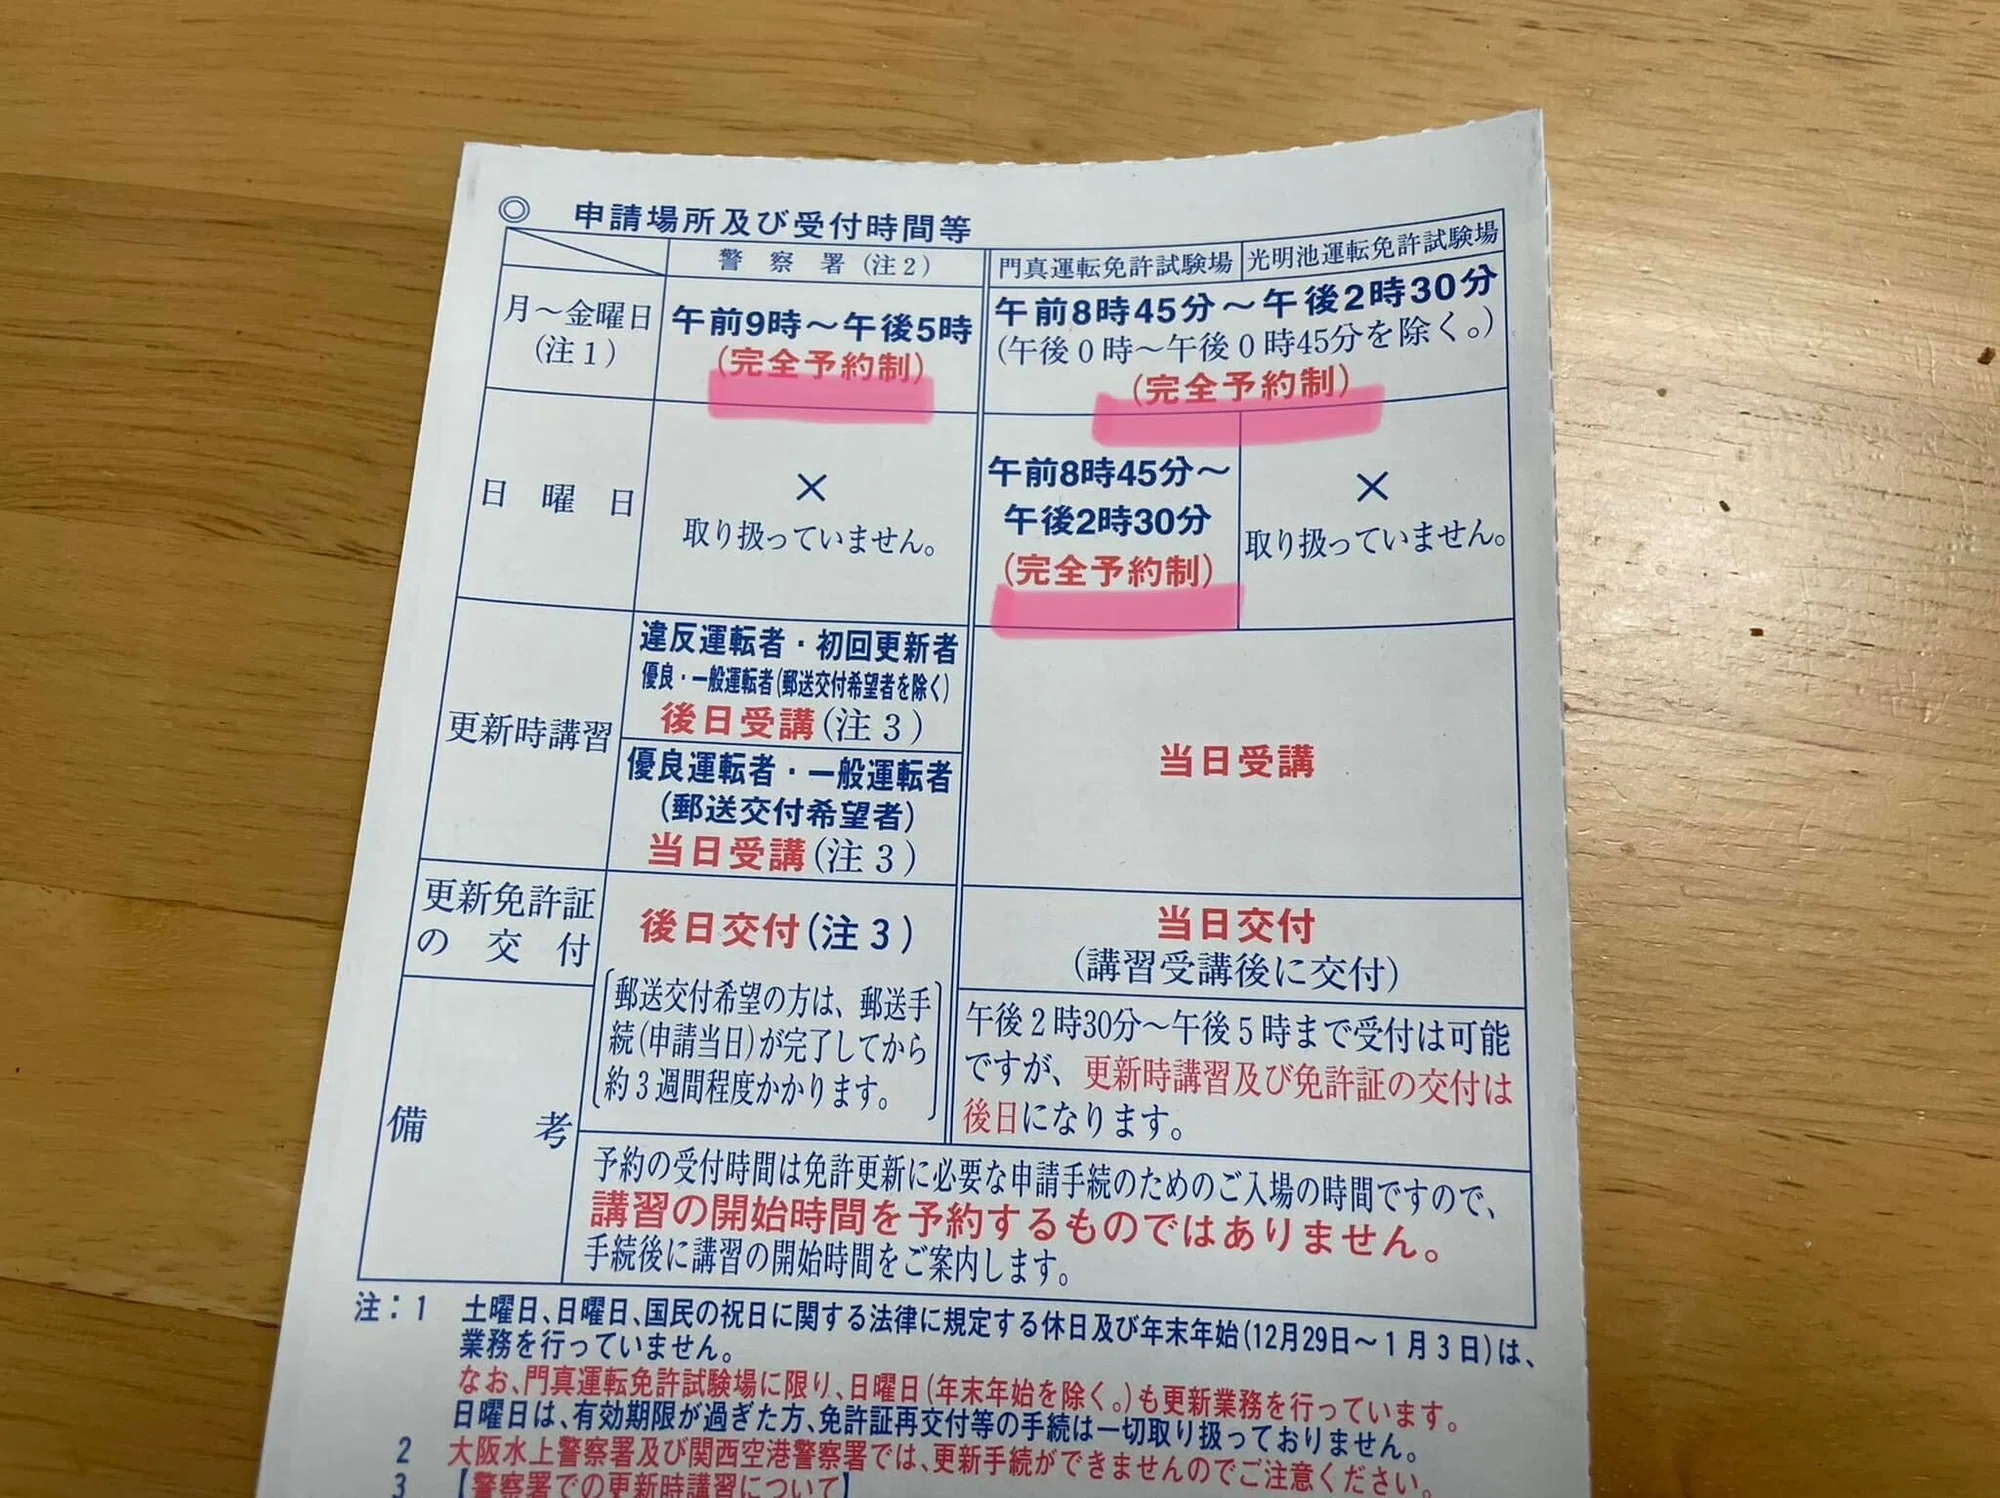 ◎ 申請場所及び受付時間等
警察署(注2)
門真運転免許試験場
光明池運転免許試験場
月～金曜日
(注1)
午前9時～午後5時
(完全予約制)
午前8時45分～午後2時30分
(午後0時～午後0時45分を除く。)
(完全予約制)
日曜日
×
取り扱っていません。
午前8時45分～
午後2時30分
(完全予約制)
×
取り扱っていません。
更新時講習
違反運転者・初回更新者
優良・一般運転者(郵送交付希望者を除く)
後日受講(注3)
優良運転者・一般運転者
(郵送交付希望者)
当日受講(注3)
当日受講
更新免許証
の交付
後日交付(注3)
郵送交付希望の方は、郵送手
続(申請当日)が完了してから
約3週間程度かかります。
当日交付
(講習受講後に交付)
備考
午後2時30分～午後5時まで受付は可能
ですが、更新時講習及び免許証の交付は
後日になります。
予約の受付時間は免許更新に必要な申請手続のためのご入場の時間ですので、
講習の開始時間を予約するものではありません。
手続後に講習の開始時間をご案内します。
注：1 土曜日、日曜日、国民の祝日に関する法律に規定する休日及び年末年始(12月29日～1月3日)は、
業務を行っていません。
なお、門真運転免許試験場に限り、日曜日(年末年始を除く。)も更新業務を行っています。
日曜日は、有効期限が過ぎた方、免許証再交付等の手続は一切取り扱っておりません。
2 大阪水上警察署及び関西空港警察署では、更新手続ができませんのでご注意ください。
3 【警察署での更新時講習について】